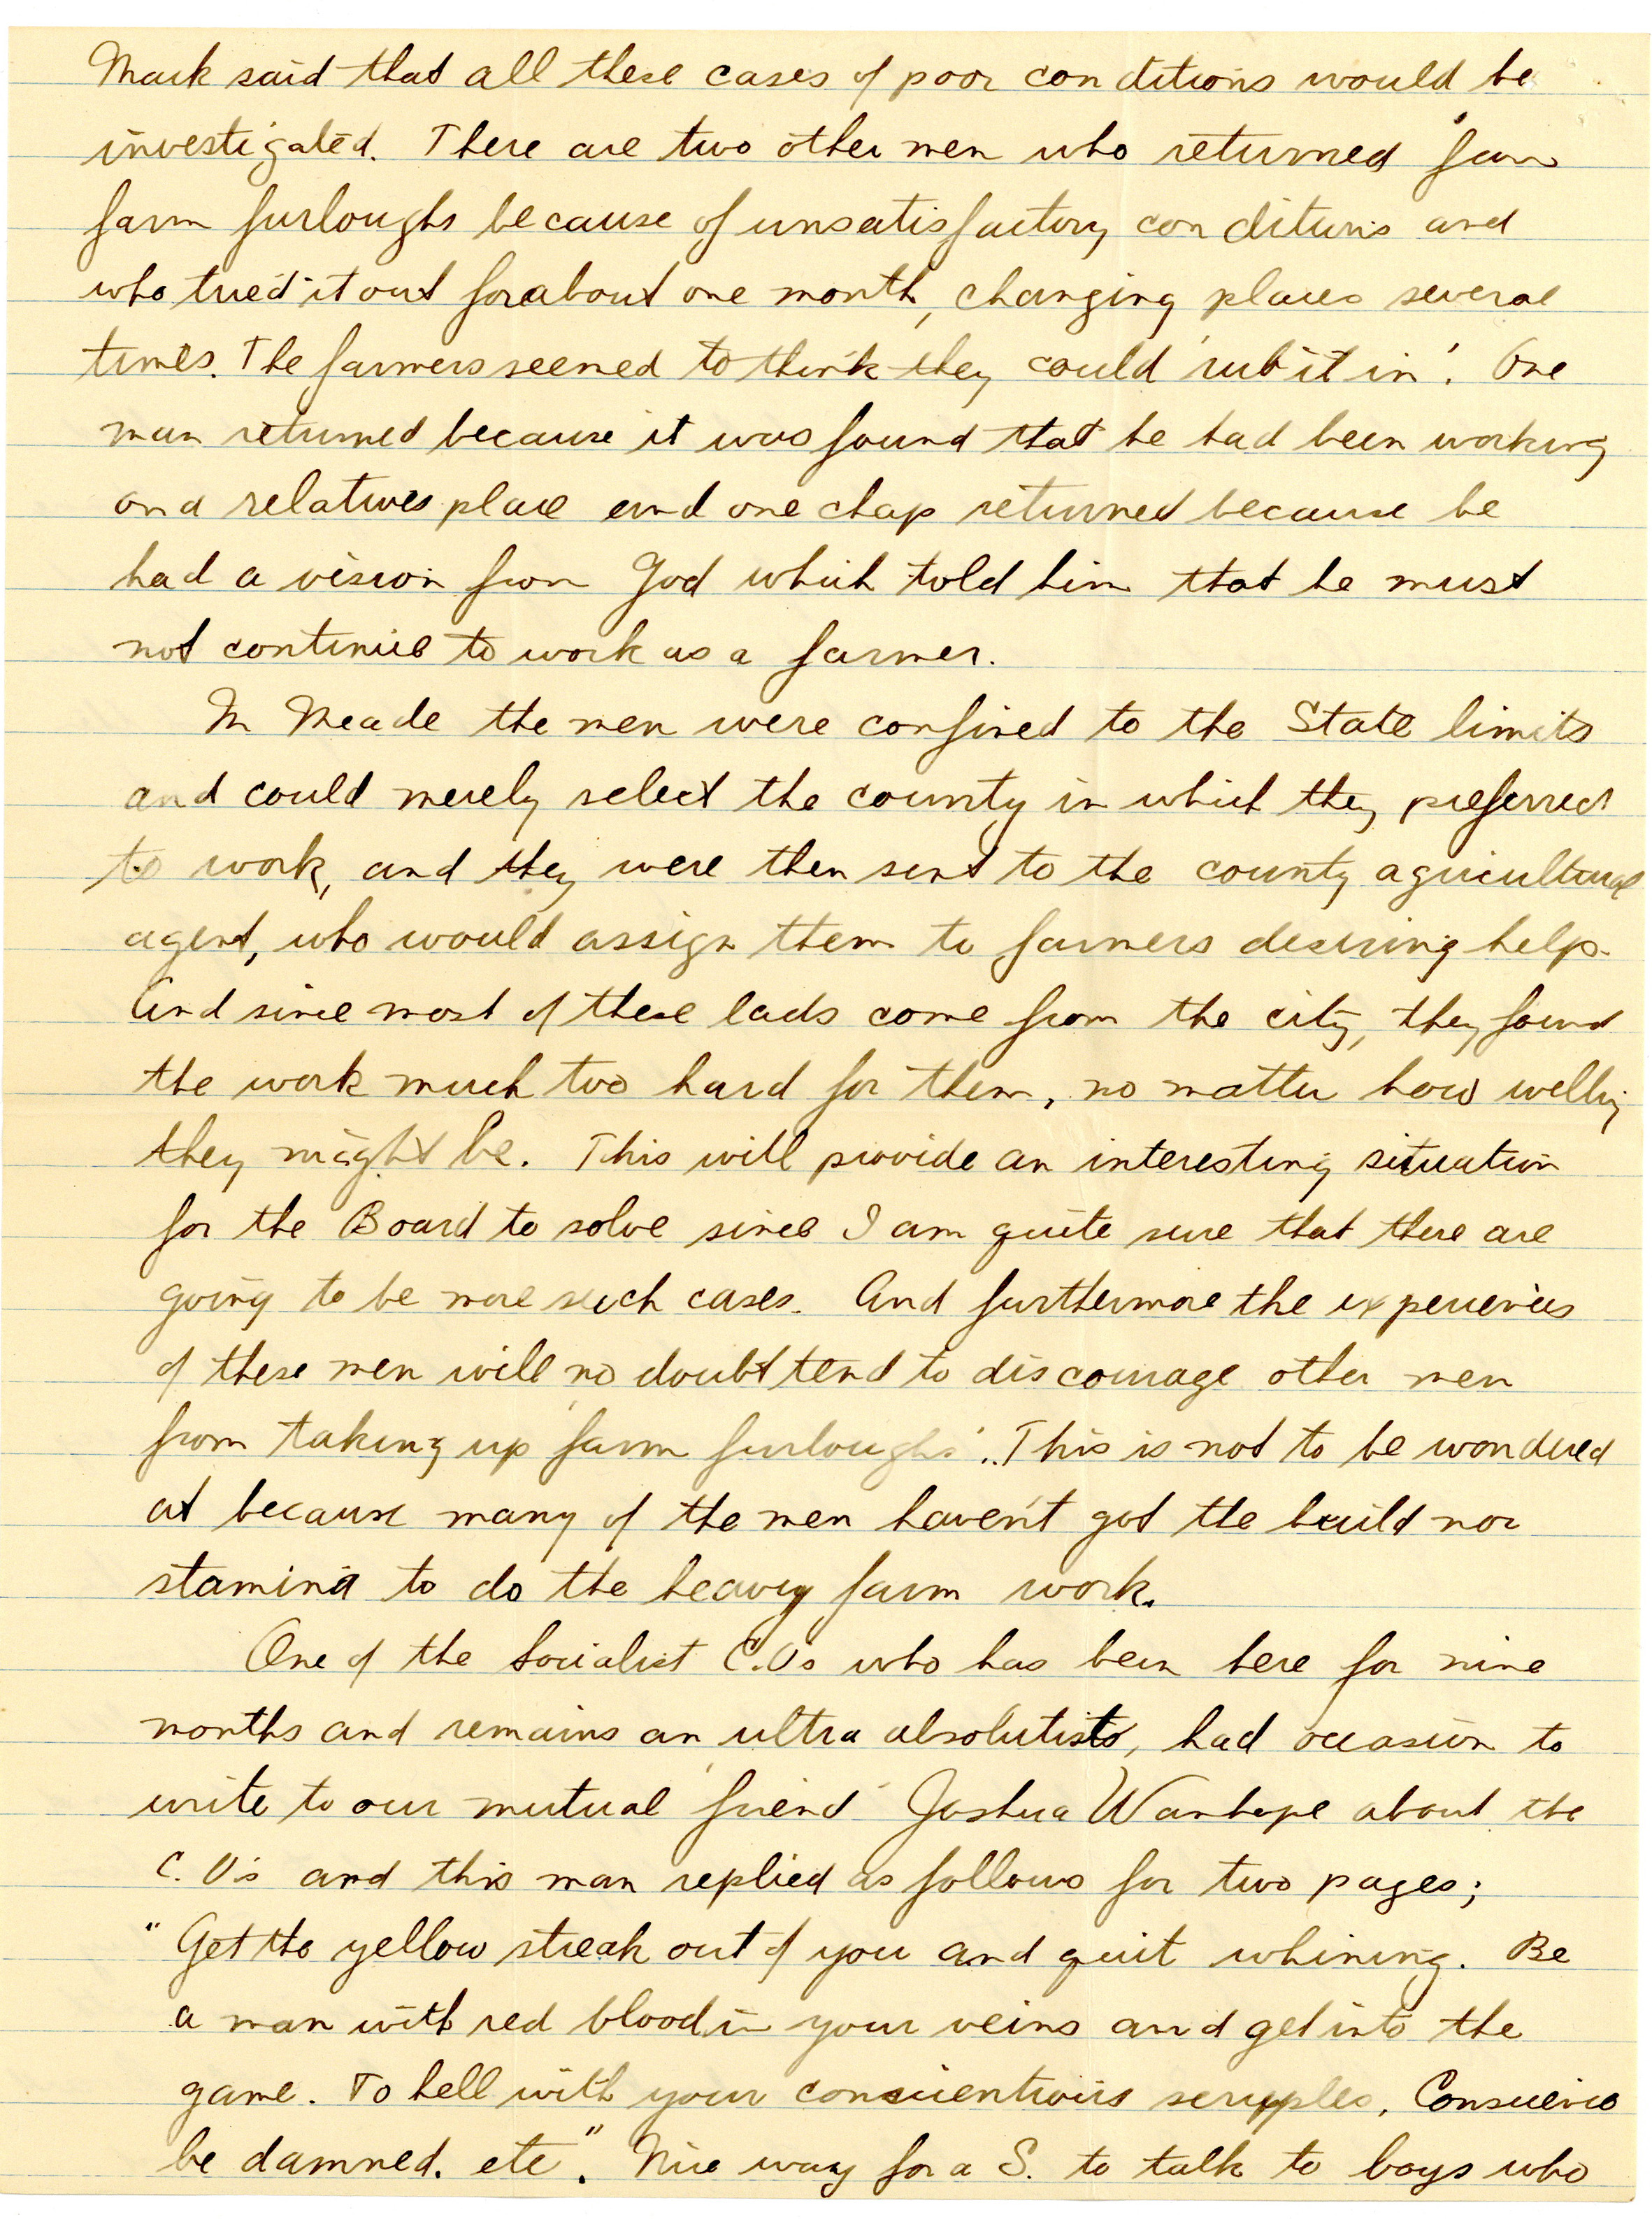 Mack said that all these cases of poor conditions would be
investigated. There are two other men who returned from
farm furloughs because of unsatisfactory conditions and
who tried it out for about one month, changing places several
times. The farmers seemed to think they could 'rub it in'. One
man returned because it was found that he had been working
on a relatives place and one chap returned because he
had a vision from God which told him that he must
not continue to work as a farmer.
In Meade the men were confined to the State limits
and could merely select the county in which they preferred
to work, and they were then sent to the county agricultural
agent, who would assign them to farmers desiring help.
And since most of these lads come from the city, they found
the work much too hard for them, no matter how willing
they might be. This will provide an interesting situation
for the Board to solve since I am quite sure that there are
going to be more such cases. And furthermore the experiences
of these men will no doubt tend to discourage other men
from taking up 'farm furloughs'. This is not to be wondered
at because many of the men haven't got the build nor
stamina to do the heavy farm work.
One of the Socialist C.Os who has been here for nine
months and remains an ultra absolutist, had occasion to
write to our mutual 'friend' Joshua Wanhope about the
C.O's and this man replied as follows for two pages;
"Get the yellow streak out of you and quit whining. Be
a man with red blood in your veins and get into the
game. To hell with your conscientious scruples. Conscience
be damned. etc". Nice way for a S. to talk to boys who